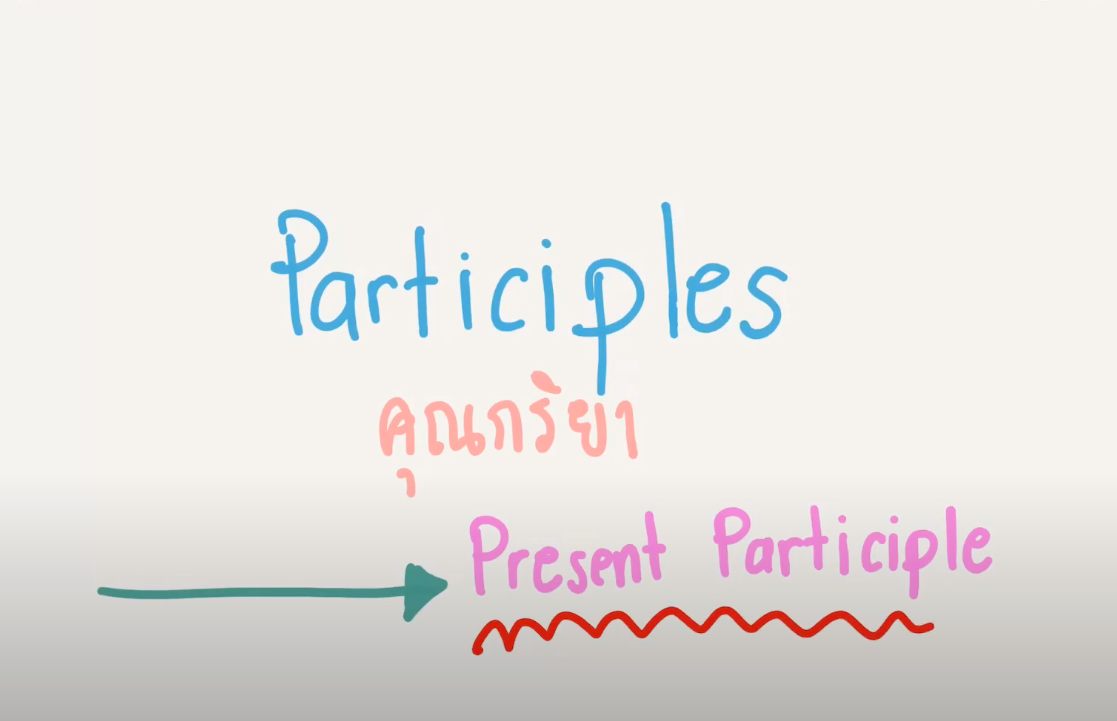 Participles
คุณกริยา
Present Participle